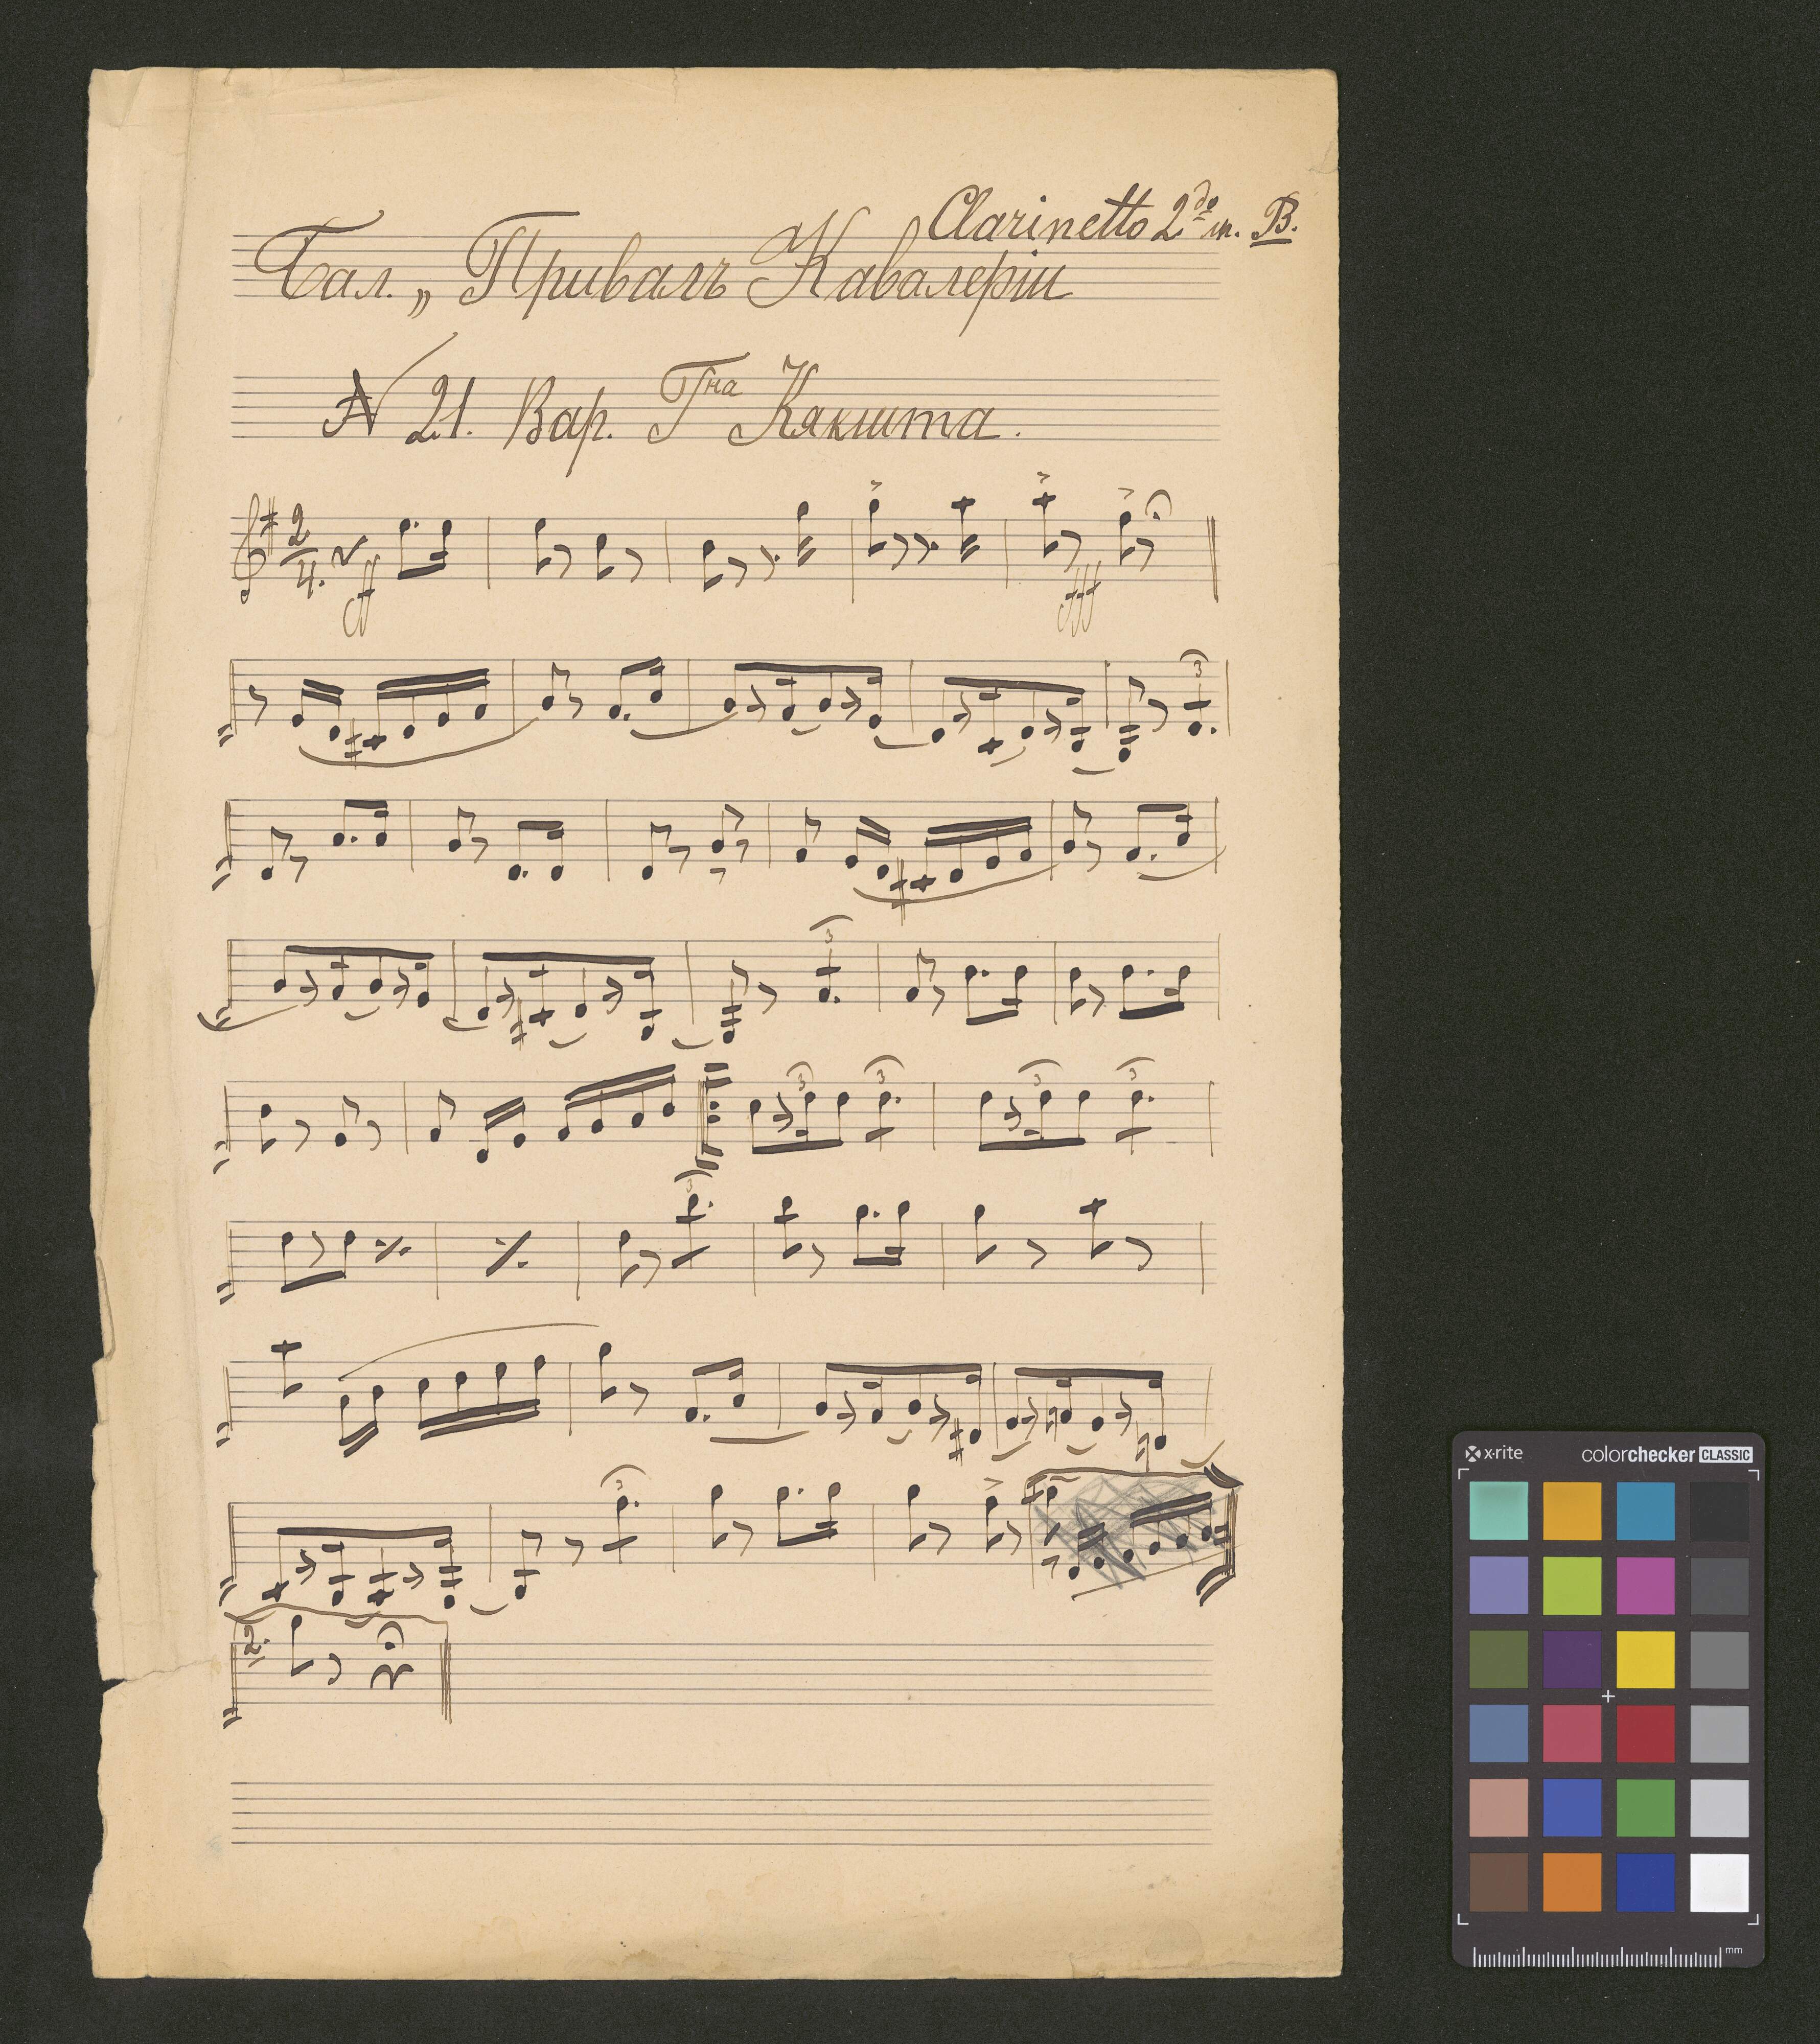 Clarinetto 2do in. B.
Бал. „ Привалъ Кавалеріи
№ 21. Вар. Гна Кякшта.
2/4.
ff
fff
3
3
3 3 3 3
3
3
2.
x·rite colorchecker CLASSIC
mm